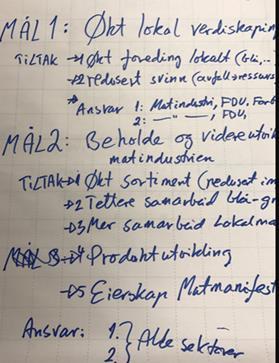 MÅL 1: Økt lokal verdiskapin
TILTAK →1 Økt foreding lokalt (blå,..
→2 redusert svinn (avfall→ressurs
* Ansvar 1: Matindustri, FOU, Forb
2: —"— , FOU,
MÅL 2: Beholde og videreutvik
matindustrien
TILTAK→1 Økt sortiment (redusert im
→2 Tettere samarbeid blå-gr
→3 Mer samarbeid Lokalma
→4 Produktutvikling
→5 Eierskap Matmanifest
Ansvar: 1.
2. } Alle sektorer